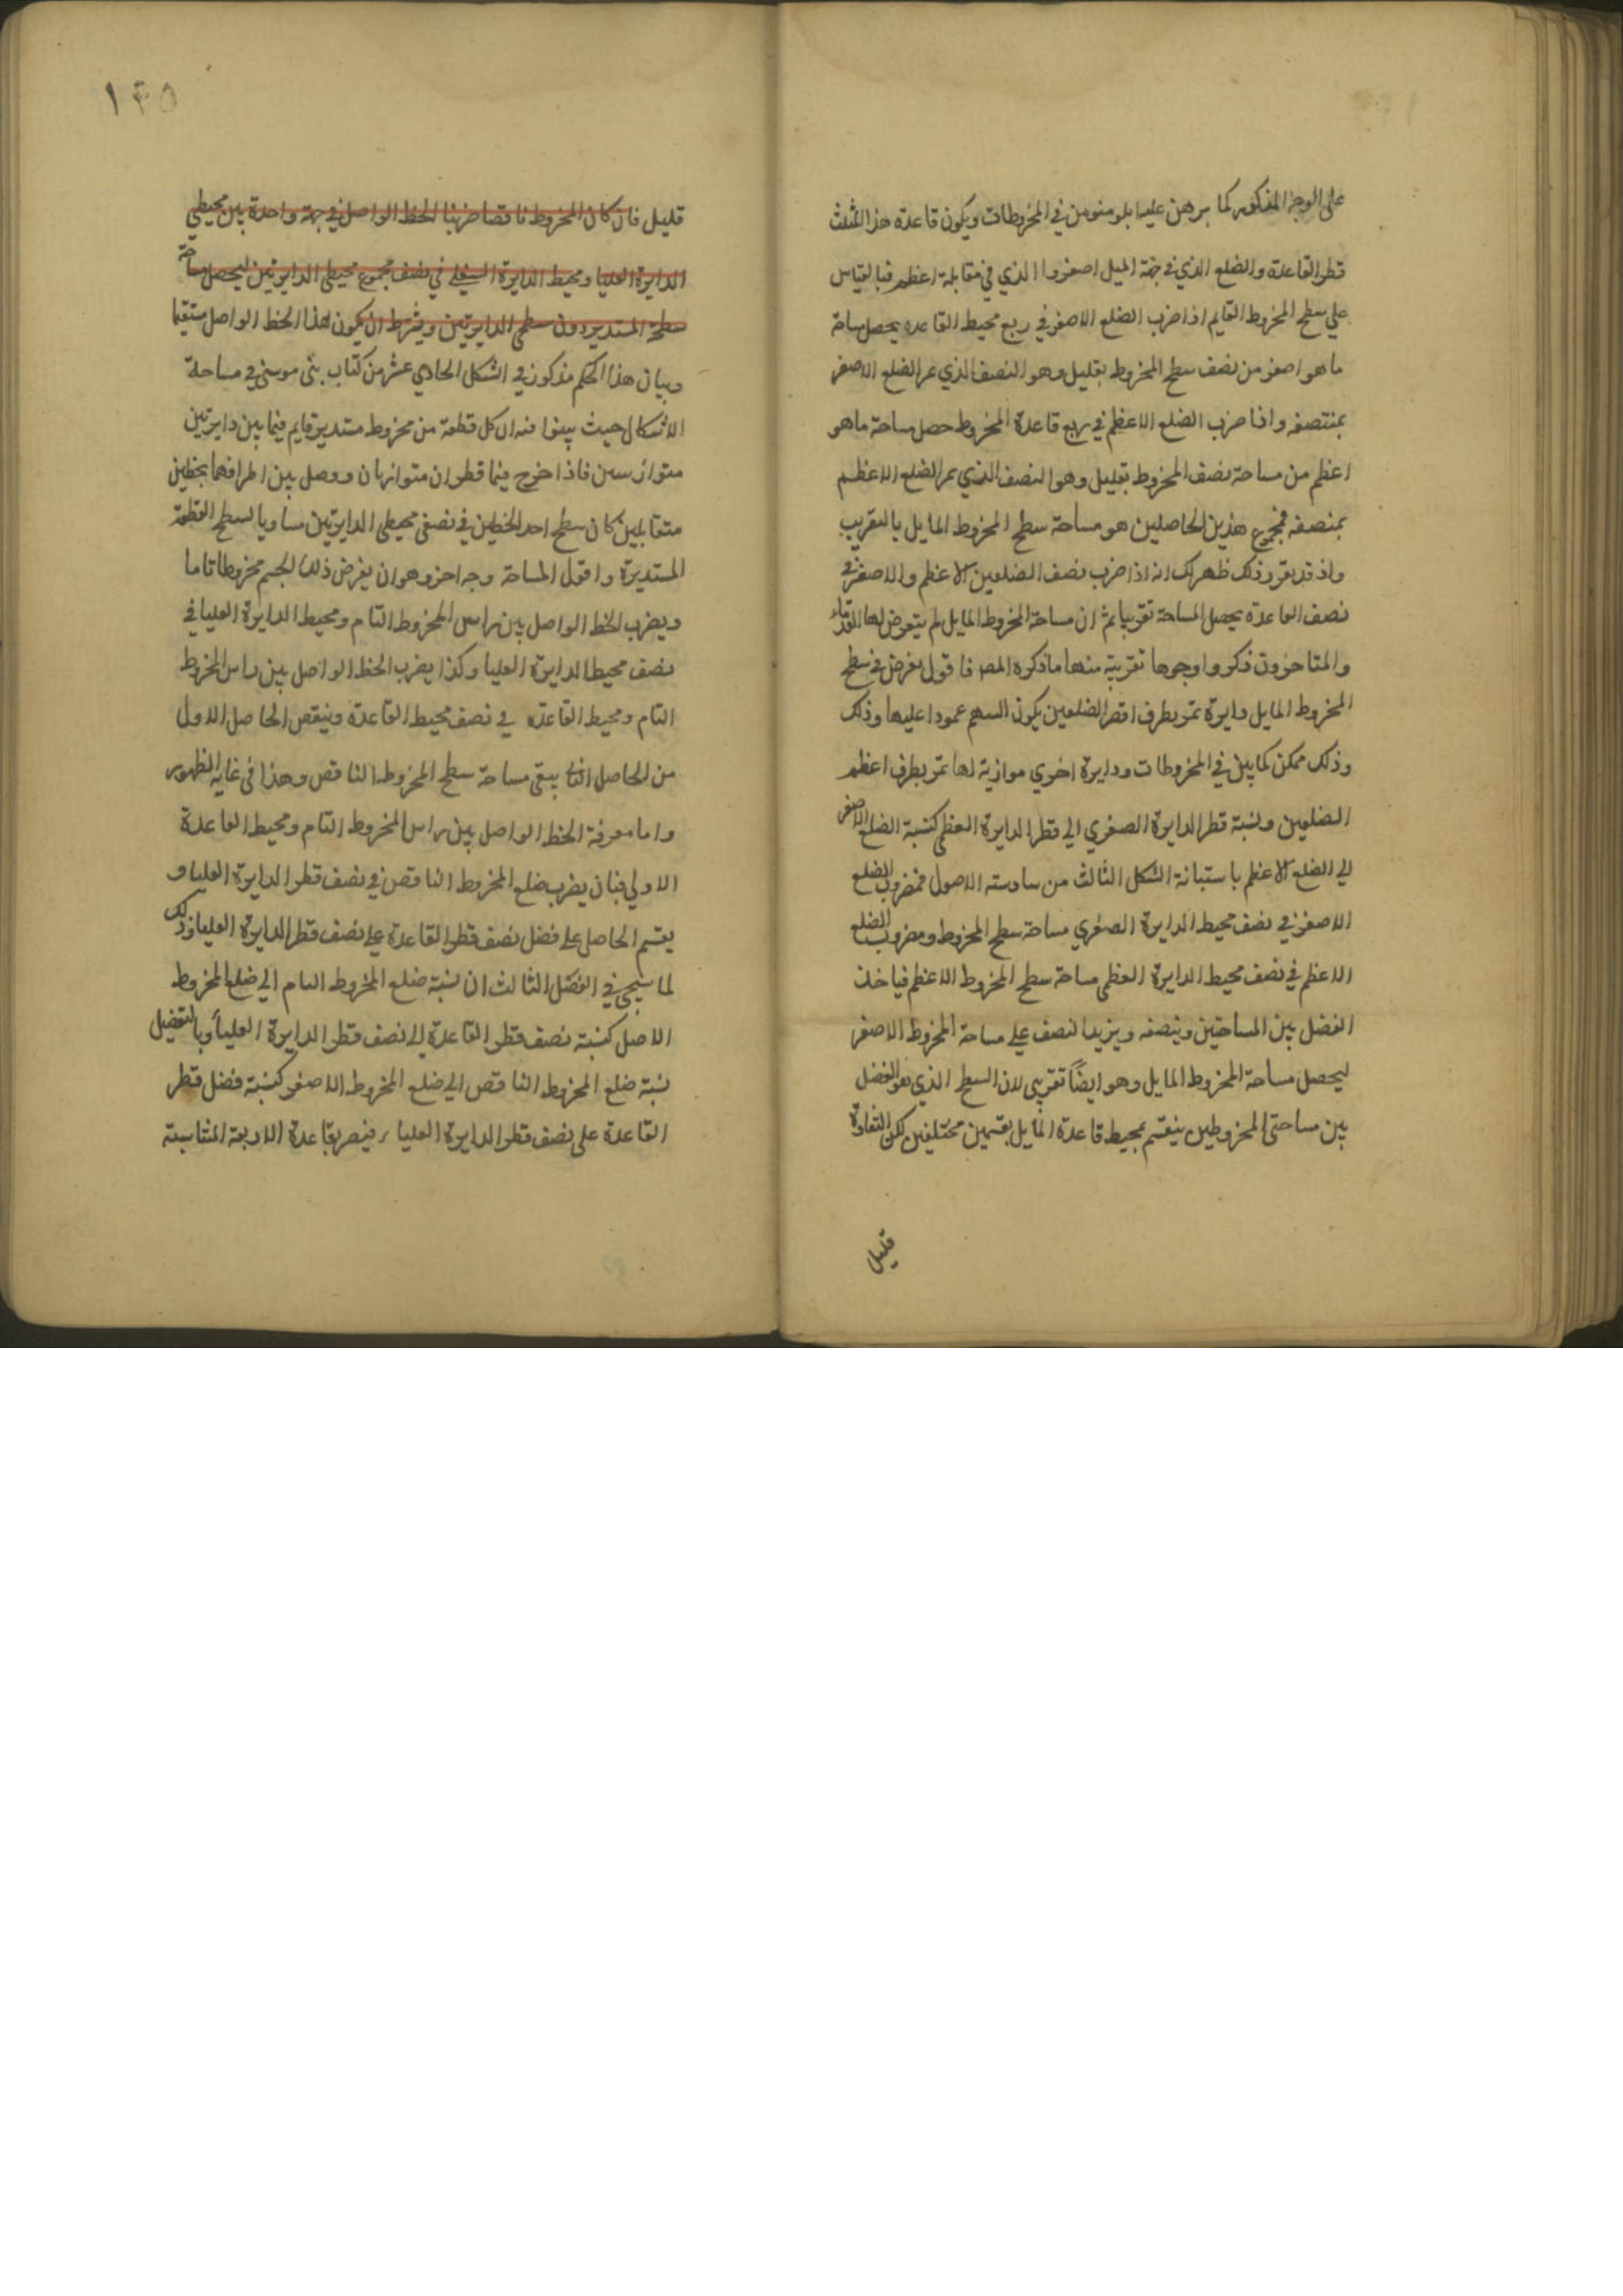 على الوجه المذكور كما برهن عليه ابلونيوس في المخروطات ويكون قاعدة هذا المثلث
قطر القاعدة والضلع الذي في جهة الميل اصغر والذي في مقابلة اعظم فبالقياس
على سطح المخروط القايم اذا ضرب الضلع الاصغر في ربع محيط القاعدة يحصل مساحة
ما هو اصغر من نصف سطح المخروط بقليل وهو النصف الذي يمر الضلع الاصغر
بمنتصفه واذا ضرب الضلع الاعظم في ربع قاعدة المخروط حصل مساحة ما هو
اعظم من مساحة نصف المخروط بقليل وهو النصف الذي يمر الضلع الاعظم
بمنصفه فمجموع هذين الحاصلين هو مساحة سطح المخروط المايل بالتقريب
واذ قد تقرر ذلك ظهر لك انه اذا ضرب نصف الضلعين الاعظم والاصغر في
نصف القاعدة يحصل المساحة تقريبا ثم ان مساحة المخروط المايل لم يتعرض لها القدماء
والمتاخرون ذكروا وجوها تقريبية منها ما ذكره المص فاقول نفرض في سطح
المخروط المايل دايرة تمر بطرف اقصر الضلعين يكون السهم عمودا عليها وذلك
وذلك ممكن كما بين في المخروطات ودايرة اخري موازية لها تمر بطرف اعظم
الضلعين ونسبة قطر الدايرة الصغري الي قطر الدايرة العظمي كنسبة الضلع الاصغر
الي الضلع الاعظم باستبانة الشكل الثالث من سادسة الاصول فمضروب الضلع
الاصغر في نصف محيط الدايرة الصغري مساحة سطح المخروط ومضروب الضلع
الاعظم في نصف محيط الدايرة العظمي مساحة سطح المخروط الاعظم فياخذ
الفضل بين المساحتين وينصفه ويزيد النصف علي مساحة المخروط الاصغر
ليحصل مساحة المخروط المايل وهو ايضاً تقريبي لان السطح الذي هو الفضل
بين مساحتي المخروطين ينقسم بمحيط قاعدة المايل بقسمين مختلفين لكن التفاوت
قليل
١٤٥
قليل فان كان المخروط ناقصا ضربنا الخط الواصل في جهة واحدة بين محيطي
الدايرة العليا ومحيط الدايرة السفلي في نصف مجموع محيطي الدايرتين ليحصل مساحة
سطحه المستدير دون سطحي الدايرتين ويشرط ان يكون هذا الخط الواصل مستقيما
وبيان هذا الحكم مذكور في الشكل الحادي عشر من كتاب بني موسي في مساحة
الاشكال حيث بينوا فيه ان كل قطعة من مخروط مستدير قايم فيما بين دايرتين
متوازيتين فاذا اخرج فيها قطران متوازيان ووصل بين اطرافهما بخطين
متقابلين كان سطح احد الخطين في نصفي محيطي الدايرتين مساويا لسطح القطعة
المستديرة واقول المساحة وجه اخر وهو ان يفرض ذلك الجسم مخروطا تاما
ويضرب الخط الواصل بين راس المخروط التام ومحيط الدايرة العليا في
نصف محيط الدايرة العليا وكذا يضرب الخط الواصل بين راس المخروط
التام ومحيط القاعدة في نصف محيط القاعدة وينقص الحاصل الاول
من الحاصل الثاني يبقي مساحة سطح المخروط الناقص وهذا في غاية الظهور
واما معرفة الخط الواصل بين راس المخروط التام ومحيط القاعدة
الاولي فبان يضرب ضلع المخروط الناقص في نصف قطر الدايرة العليا و
يقسم الحاصل علي فضل نصف قطر القاعدة علي نصف قطر الدايرة العليا وذلك
لما سيجي في الفصل الثالث ان نسبة ضلع المخروط التام الي ضلع المخروط
الاصل كنسبة نصف قطر القاعدة الي نصف قطر الدايرة العليا وبالتفضيل
نسبة ضلع المخروط الناقص الي ضلع المخروط الاصغر كنسبة فضل قطر
القاعدة علي نصف قطر الدايرة العليا فبقاعدة الاربعة المتناسبة